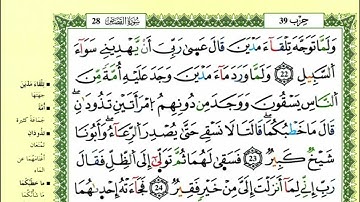 28 سُورَةُ القَصَصِ حِزْب 39
وَلَمَّا تَوَجَّهَ تِلْقَآءَ مَدْيَنَ قَالَ عَسَىٰ رَبِّيٓ أَنْ يَّهْدِيَنِي سَوَآءَ
اَ۬لسَّبِيلِ 22 وَلَمَّا وَرَدَ مَآءَ مَدْيَنَ وَجَدَ عَلَيْهِ أُمَّةً مِّنَ
اَ۬لنَّاسِ يَسْقُونَ وَوَجَدَ مِن دُونِهِمُ اُ۪مْرَأَتَيْنِ تَذُودَٰنِ
قَالَ مَا خَطْبُكُمَا قَالَتَا لَا نَسْقِي حَتَّىٰ يُصْدِرَ اَ۬لرِّعَآءُ وَأَبُونَا
شَيْخٌ كَبِيرٌ 23 فَسَقَىٰ لَهُمَا ثُمَّ تَوَلَّىٰٓ إِلَى اَ۬لظِّلِّ فَقَالَ
رَبِّ إِنِّي لِمَآ أَنزَلْتَ إِلَيَّ مِنْ خَيْرٍ فَقِيرٌ 24 فَجَآءَتْهُ إِحْدَىٰهُمَا
تِلْقَاءَ مَدْيَنَ
جهتها
أُمَّةً
جماعة كثيرة
تَذُودَانِ
تمنعان
أغنامهما عن
الماء
مَا خَطْبُكُمَا
ما شأنكما